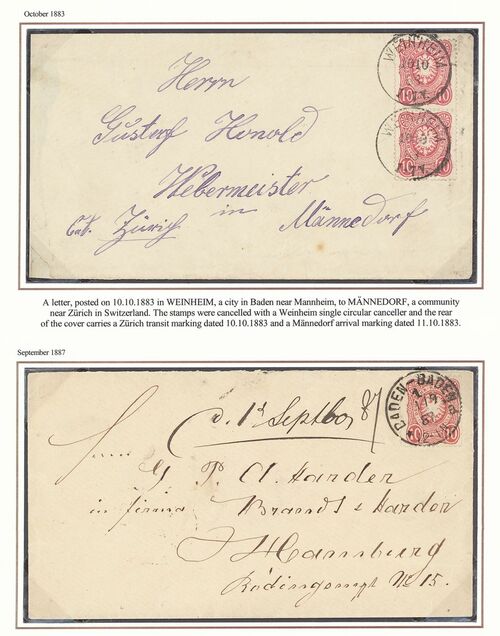 October 1883
WEINHEIM
10 10
10 10
WEINHEIM
10 10
Herrn
Gustav Honold
Webermeister
in
Cat. Zürich Männedorf
A letter, posted on 10.10.1883 in WEINHEIM, a city in Baden near Mannheim, to MÄNNEDORF, a community
near Zürich in Switzerland. The stamps were cancelled with a Weinheim single circular canceller and the rear
of the cover carries a Zürich transit marking dated 10.10.1883 and a Männedorf arrival marking dated 11.10.1883.
September 1887
BADEN-BADEN
1 9
87
10 10
d. 1t Septbr 87
Herrn
G. P. A. Harder
in Firma Brandt & Harder
Hamburg
Rödingsmpt No 15.